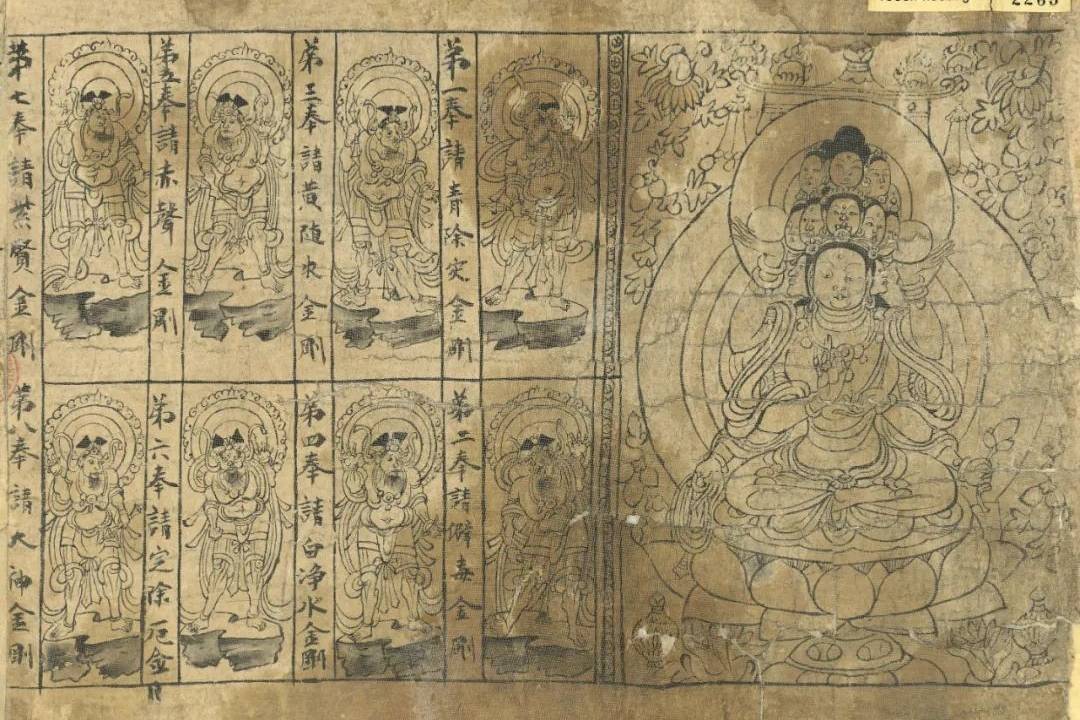 第一奉請青除灾金剛
第二奉請僻毒金剛
第三奉請黄随求金剛
第四奉請白净水金剛
第五奉請赤聲金剛
第六奉請定除厄金
第七奉請紫賢金剛
第八奉請大神金剛